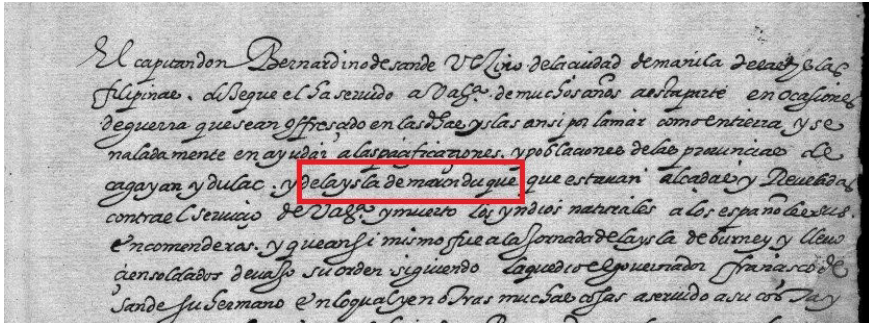 El capitan don Bernardino de sande Vezino de la ciudad de manila de las yslas
filipinas. dize que el ha seruido a V. Mag.d de muchos años a esta parte en ocasiones
de guerra que se an offrescido en las dhas yslas ansi por la mar como en tierra, y se
naladamente en ayudar a las pacificaziones. y poblaciones de las prouincias de
cagayan y dulac. y de la ysla de marinduque que estauan alçadas y Reueladas
contra el seruiçio de V. Mag.d y muerto los yndios naturales a los españoles sus
encomenderos. y que ansi mismo fue a la Jornada de la ysla de burney y lleuo
soldados devaxo su orden siguiendo la que dio el gouernador françisco de
Sande su hermano en lo qual y en otras muchas cosas a seruido a su costa y